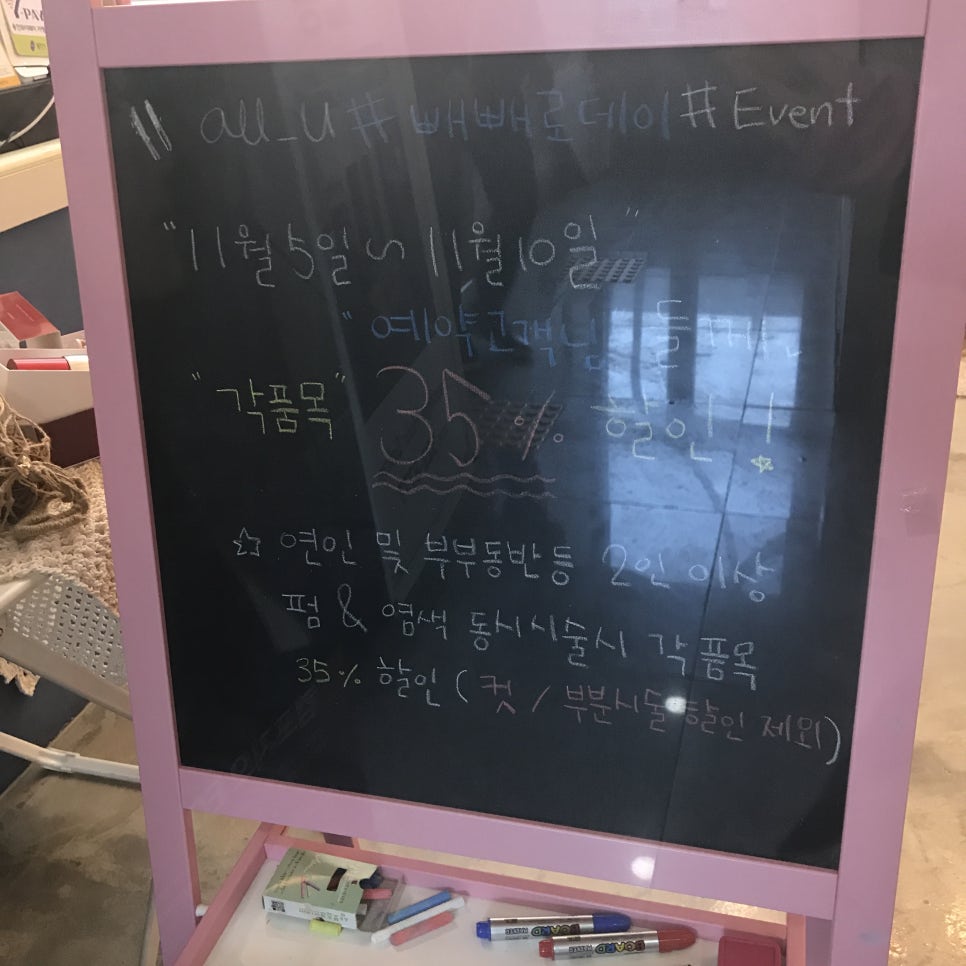 all_u # 빼빼로데이 # Event
"11월 5일 ~ 11월 10일"
"예약고객님" 들께는
"각품목" 35% 할인!
☆ 연인 및 부부동반등 2인 이상
펌 & 염색 동시시술시 각 품목
35% 할인 (컷 / 부분시술 할인 제외)
BOARD
BOARD